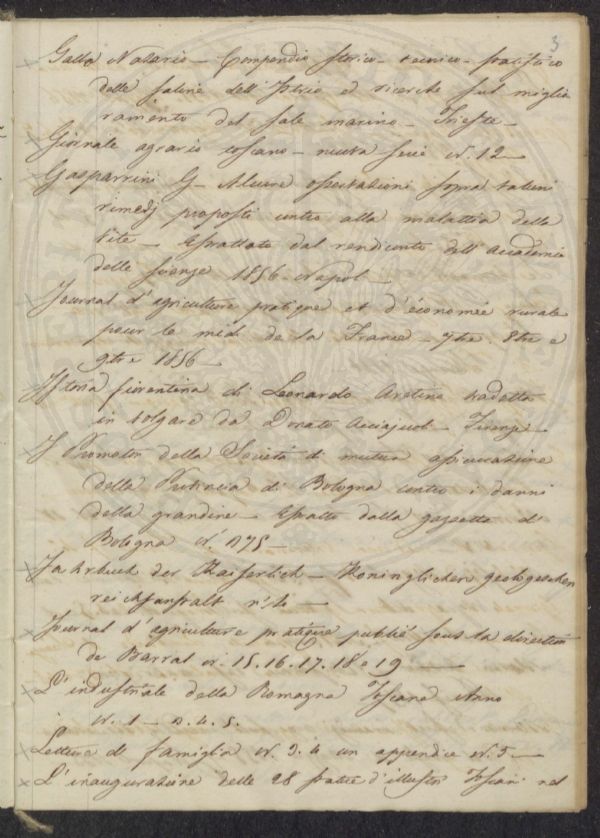 3
Gallo Natario - Compendio storico - tecnico - statistico
delle saline dell'Istria e ricerche sul miglio
ramento del sale marino - Trieste -
Giornale agrario toscano - nuova serie N. 12 -
Gasparrini G - Alcune osservazioni sopra taluni
rimedj proposti contro alla malattia della
vite - Estrattato dal rendiconto dell'Accademia
delle scienze 1856 - Napol -
Journal d'agriculture pratique et d'économie rurale
pour le midi de la France - 7bre 8bre e
9bre 1856 -
Istoria fiorentina di Leonardo Aretino tradotta
in volgare da Donato Acciajuoli - Firenze -
I Promotori della Società di mutua assicurazione
della Provincia di Bologna contro i danni
della grandine - Estratto dalla gazzetta di
Bologna N. 175 -
Jahrbuch der Kaiserlich - Koninglichen geologeschen
reichsanstalt
Journal d'agriculture pratique publié sous la direction
de Barral N. 15. 16. 17. 18 e 19 -
L'industriale della Romagna Toscana Anno
N. 1 - 2. 4. 5.
Letture di famiglia N. 3. 4 un appendice N. 5 -
L'inaugurazione delle 28 statue d'illustri Toscani nel